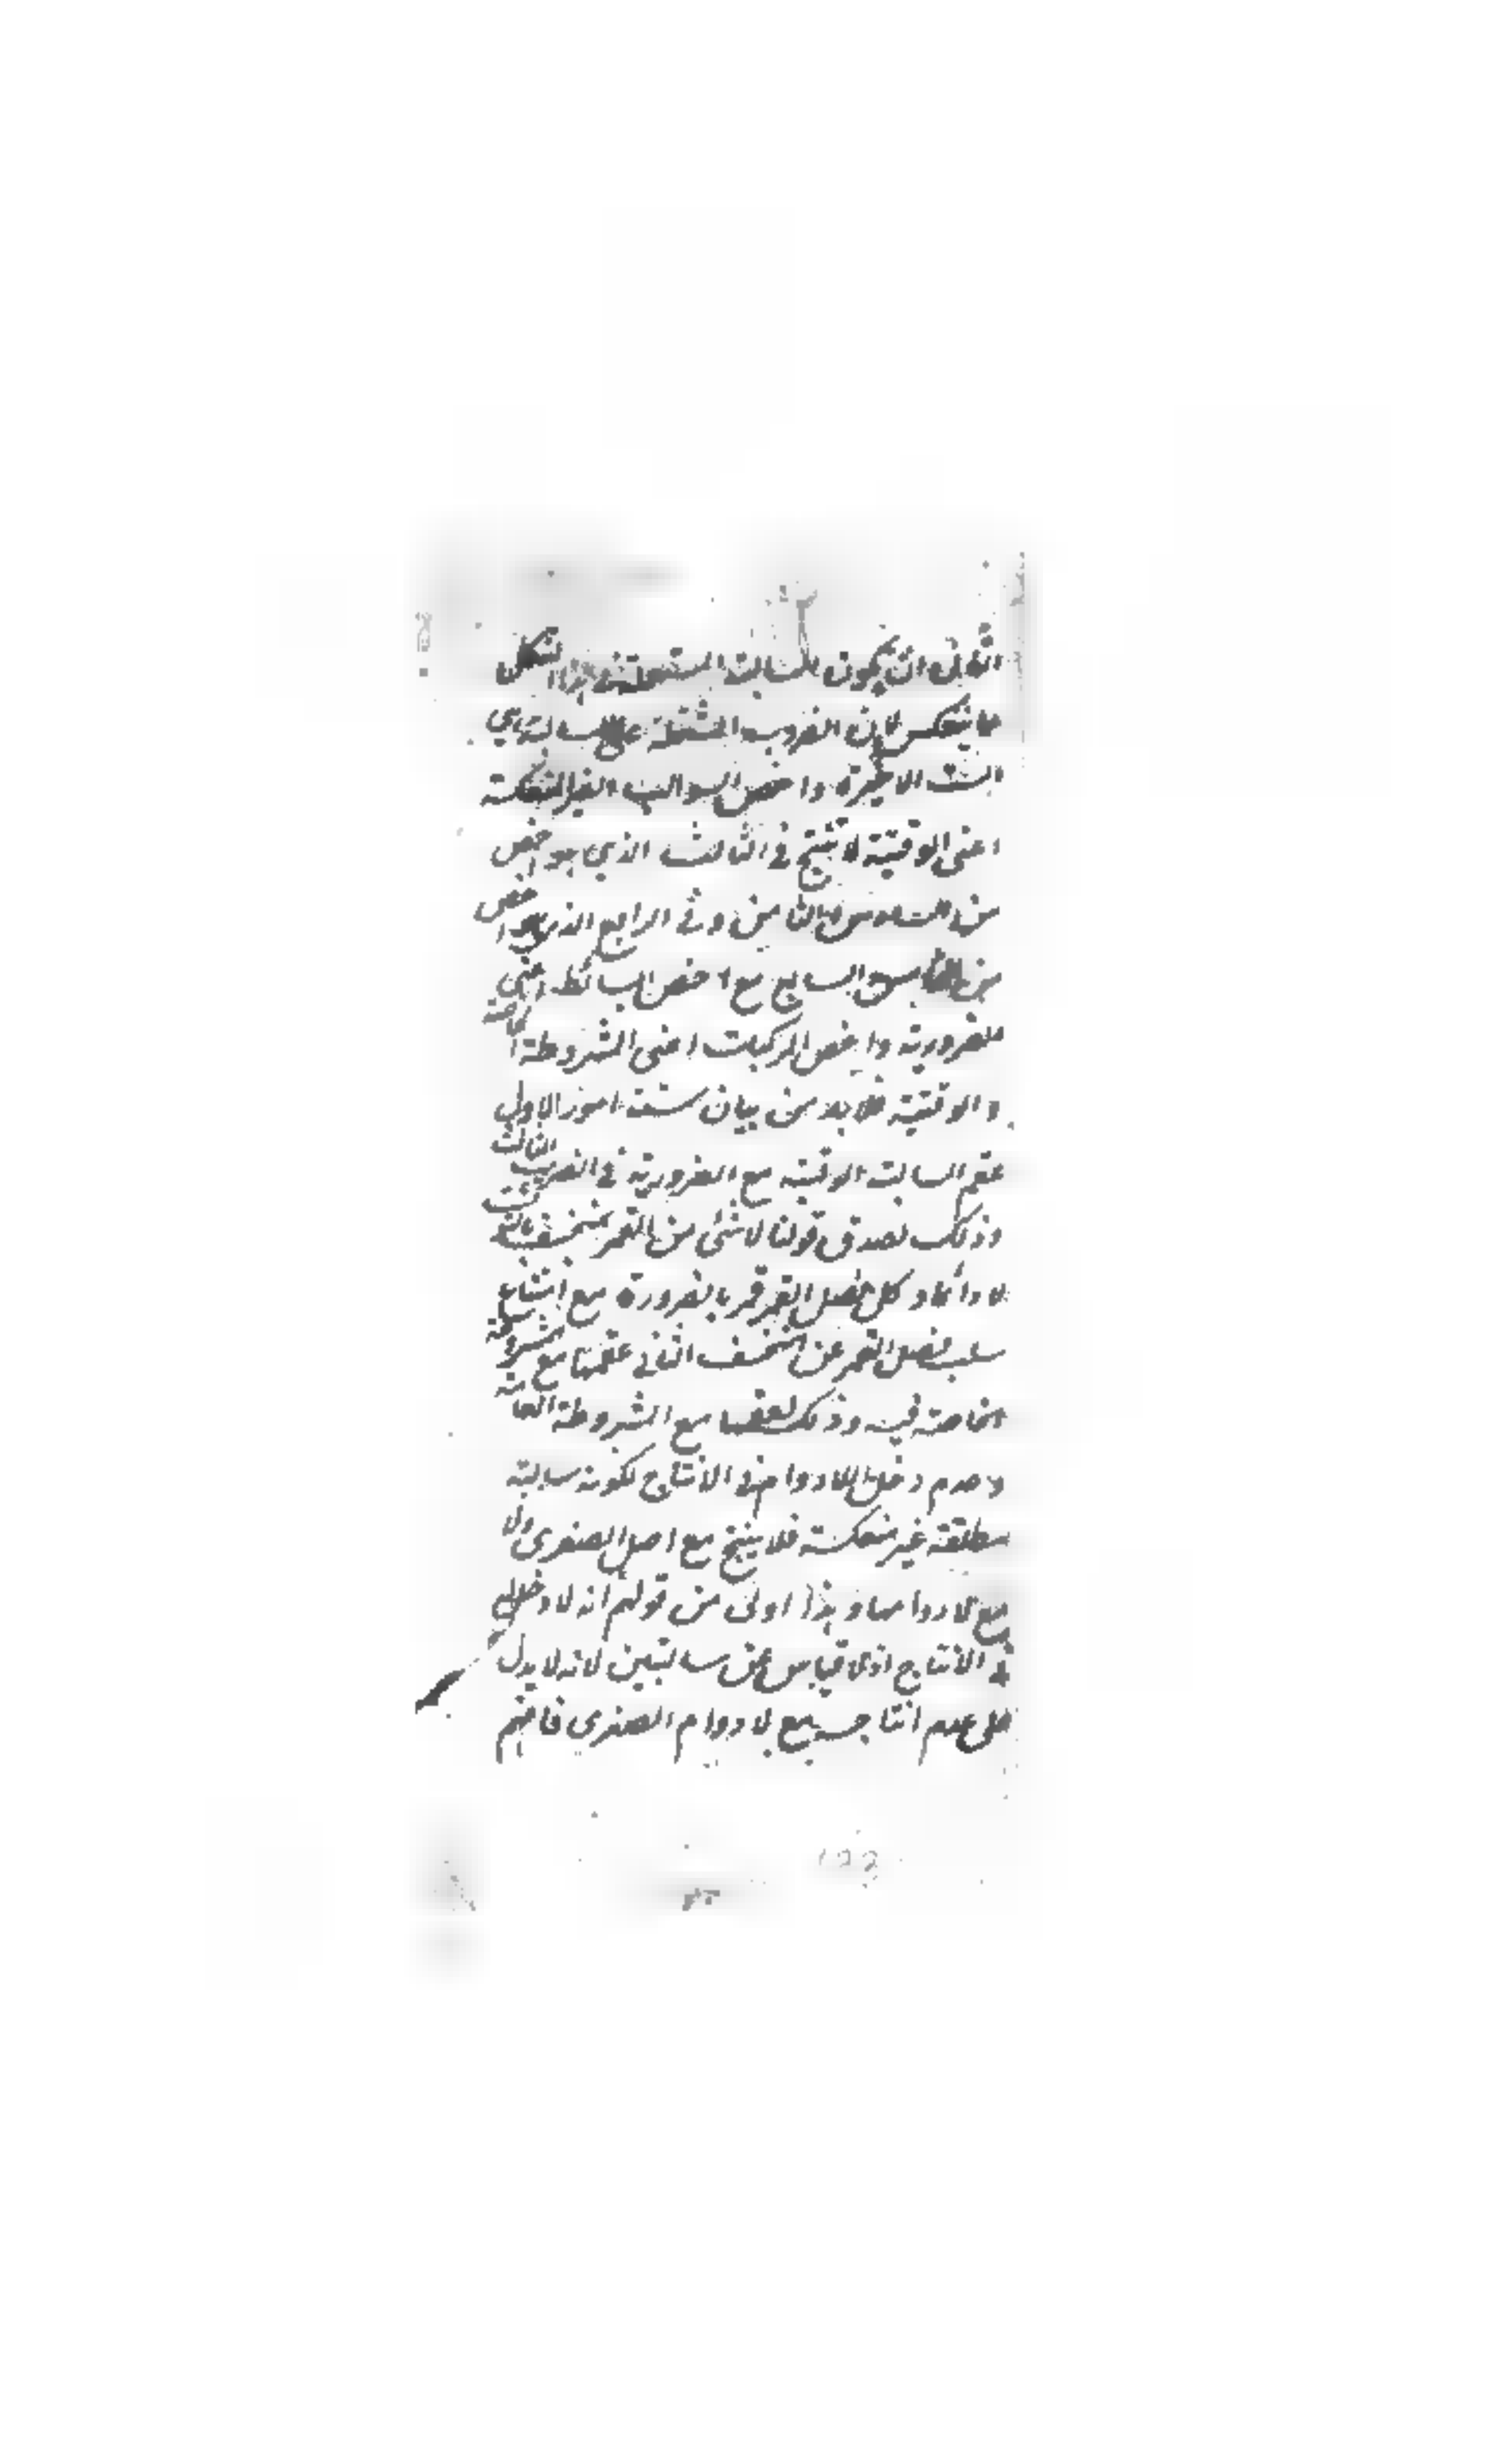 الثانى ان يكون السالبة المستعملة فى هذا الشكل
مما ينعكس لان الضروب المشتملة على السالبة هى
الست الاخيرة واخص السوالب الغير المنعكسة
اعنى الوقتية لا تنتج فى الثالث الذى هو اخص
من السادس والثامن وفى الرابع الذى هو اخص
من الخامس والسابع مع اخص البسائط اعنى
الضرورية واخص المركبات اعنى المشروطة الخاصة
والوقتية فلا بد من بيان ستة امور الاول
عقم السالبة الوقتية مع الضرورية فى الضرب الثالث
وذلك لصدق قولنا لا شئ من القمر بمنخسف بالتوقيت
لا دائما وكل فصل القمر قمر بالضرورة مع امتناع
سلب فصل القمر عن المنخسف الثانى عقمها مع المشروطة
الخاصة فيه وذلك لعقمها مع المشروطة العامة
وعدم دخل اللادوام فى الانتاج لكونه سالبة
مطلقة غير منعكسة فلا ينتج مع اصل الصغرى ولا
مع لا دوامها وهذا اولى من قولهم انه لا دخل له
فى الانتاج اذ لا قياس عن سالبتين لانه لا يدل
على عدم انتاجه مع لا دوام الصغرى فافهم